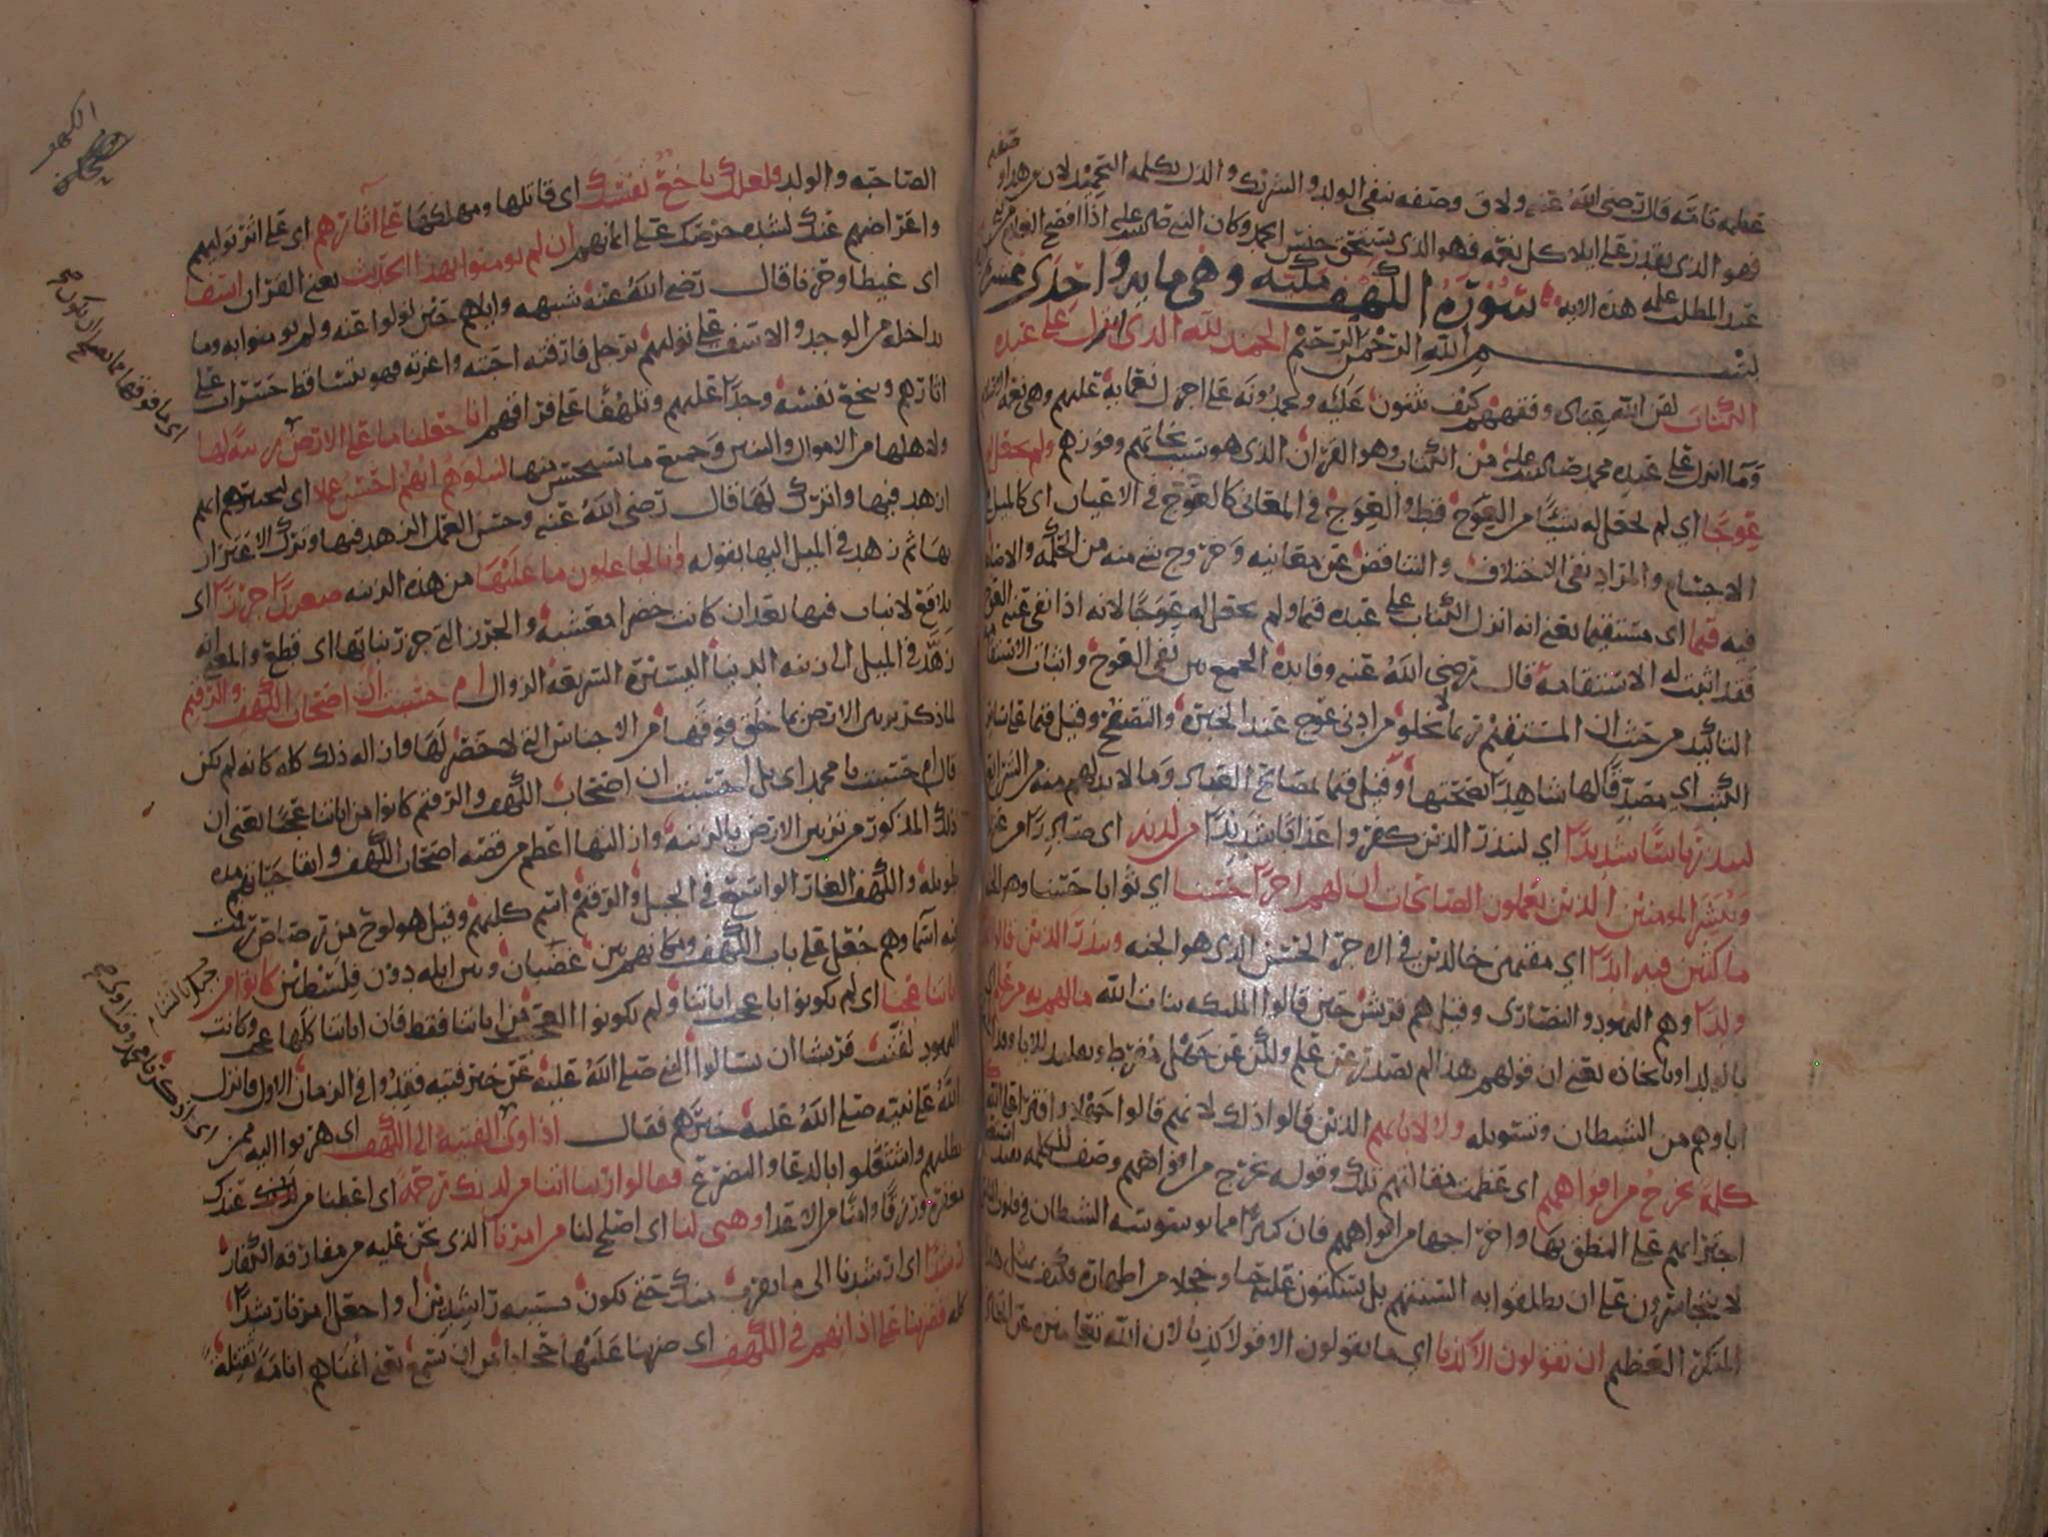 عظمه فانه قال رضى الله عنه ولاق وصفه بنفى الولد والشريك والذل بكلمه التحميد لان من هذا وصفه
فهو الذى يقدر على ايلا كل نعمه فهو الذى يستحق جنس الحمد وكان النبى صلى الله عليه اذا افصح الغلام من بنى
عبد المطلب علمه هذه الايه سورة الكهف مكيه وهى مايه واحدى عشر
بسم الله الرحمن الرحيم الحمد لله الذى انزل على عبده
الكتاب لقن الله عباده وفقههم كيف يثنون عليه ويحمدونه على اجزل نعمايه عليهم وهى نعمه
وما انزل على عبده محمد صلى الله عليه من الكتاب وهو القران الذى هو سبب نجاتهم وفوزهم ولم يجعل له
عوجا اي لم يجعل له شيا من العوج قط والعوج فى المعانى كالعوج فى الاعيان اى كالميل فى
الاجسام والمراد نفى الاختلاف والتناقض عن معانيه وخروج شى منه من الحكمه
فيه قيما اى مستقيما يعنى انه انزل الكتاب على عبده قيما ولم يجعل له عوجا لانه اذا نفى عنه العوج
فقد اثبت له الاستقامه قال رضى الله عنه وفايده الجمع بين نفى العوج واثبات الاستقامه
التاكيد من حيث ان المستقيم ربما لا يخلو من ادنى عوج عند الخبره والتصفح وقيل قيما على ساير
الكتب اي مصدقا لها شاهدا بصحتها وقيل قيما بمصالح العباد وما لا بد لهم منه من الشرايع
لينذر باسا شديدا اي لينذر الذين كفروا عذابا شديدا من لدنه اى صادرا من
ويبشر المومنين الذين يعملون الصالحات ان لهم اجرا حسنا اي ثوابا حسنا وهو الجنه
ماكثين فيه ابدا اي مقيمين خالدين فى الاجر الحسن الذى هو الجنه وينذر الذين قالوا
ولدا وهم اليهود والنصارى وقيل هم قريش حين قالوا الملئكه بنات الله مالهم به من علم اى
بالولد او باتخاذه يعنى ان قولهم هذا لم يصدر عن علم ولكن عن جهل مفرط وتقليد للابا
اباوهم من الشيطان وتسويله ولا لابايهم الذين قالوا ذلك لانهم قالوا جهلا وافترا على الله
كلمة تخرج من افواههم اى عظمت مقالتهم تلك وقوله تخرج من افواههم وصف للكلمه
اجترايهم على النطق بها واخراجها من افواههم فان كثيرا مما يوسوسه الشيطان فى قلوب
لا يتجاسرون على ان يطلقوا به السنتهم بل يسكتون عليه حيا وخجلا من اظهاره فكيف بمثل هذا
المنكر العظيم ان يقولون الا كذبا اي ما يقولون الا قولا كذبا لان الله تعالى منزه عن اتخاذ
الصاحبه والولد فلعلك باخع نفسك اى قاتلها ومهلكها على اثارهم اى على اثر توليهم
واعراضهم عنك لشده حرصك على ايمانهم ان لم يومنوا بهذا الحديث يعنى القران اسفا
اى غيظا وحزنا قال رضى الله عنه شبهه واياهم حين تولوا عنه ولم يومنوا به وما
يداخله من الوجد والاسف على توليهم برجل فارقته احبته واعزته فهو يتساقط حسرات على
اثارهم ويبخع نفسه وجدا عليهم وتلهفا على فراقهم انا جعلنا ما على الارض زينه لها
ولاهلها من الاموال والبنين وجميع ما يستحسن منها لنبلوهم ايهم احسن عملا اى لنختبرهم ايهم
ازهد فيها واترك لها قال رضى الله عنه وحسن العمل الزهد فيها وترك الاغترار
بها ثم زهد فى الميل اليها بقوله وانا لجاعلون ما عليها من هذه الزينه صعيدا جرزا اى
بلاقع لا نبات فيها بعد ان كانت خضرا معشبه والجرز التى جرز نباتها اى قطع والمعنى انه
زهد فى الميل الى زينه الدنيا اليسيره السريعه الزوال ام حسبت ان اصحاب الكهف والرقيم
لما ذكر تزيين الارض بما خلق فوقها من الاجناس التى لا حصر لها وازاله ذلك كله كانه لم يكن
قال ام حسبت يا محمد اى بل احسبت ان اصحاب الكهف والرقيم كانوا من اياتنا عجبا يعنى ان
ذلك المذكور من تزيين الارض بالزينه وازالتها اعظم من قصه اصحاب الكهف وابقا حياتهم مده
طويله والكهف الغار الواسع فى الجبل والرقيم اسم كلبهم وقيل هو لوح من رصاص رقمت
فيه اسماوهم جعل على باب الكهف ومكانهم بين غضبان وبين ايله دون فلسطين كانوا من
اياتنا عجبا اى لم يكونوا باعجب اياتنا ولم يكونوا العجب من اياتنا فقط فان اياتنا كلها عجب وكانت
اليهود لقنت قريشا ان يسالوا النبى صلى الله عليه عن خبر فتيه فقدوا فى الزمان الاول فانزل
الله على نبيه صلى الله عليه خبرهم فقال اذ اوى الفتيه الى الكهف اى هربوا اليه ممن
يطلبهم واشتغلوا بالدعا والتضرع فقالوا ربنا اتنا من لدنك رحمه اى اعطنا من عندك
مغفره ورزقا وامنا من الاعدا وهيى لنا اى اصلح لنا من امرنا الذى نحن عليه من مفارقه الكفار
رشدا اى ارشدنا الى ما يقرب منك حتى نكون بسببه راشدين او اجعل امرنا رشدا
كله فضربنا على اذانهم فى الكهف اى ضربنا عليها حجابا من ان تسمع يعنى انمناهم انامة ثقيلة
الكهف
جبل بالشام